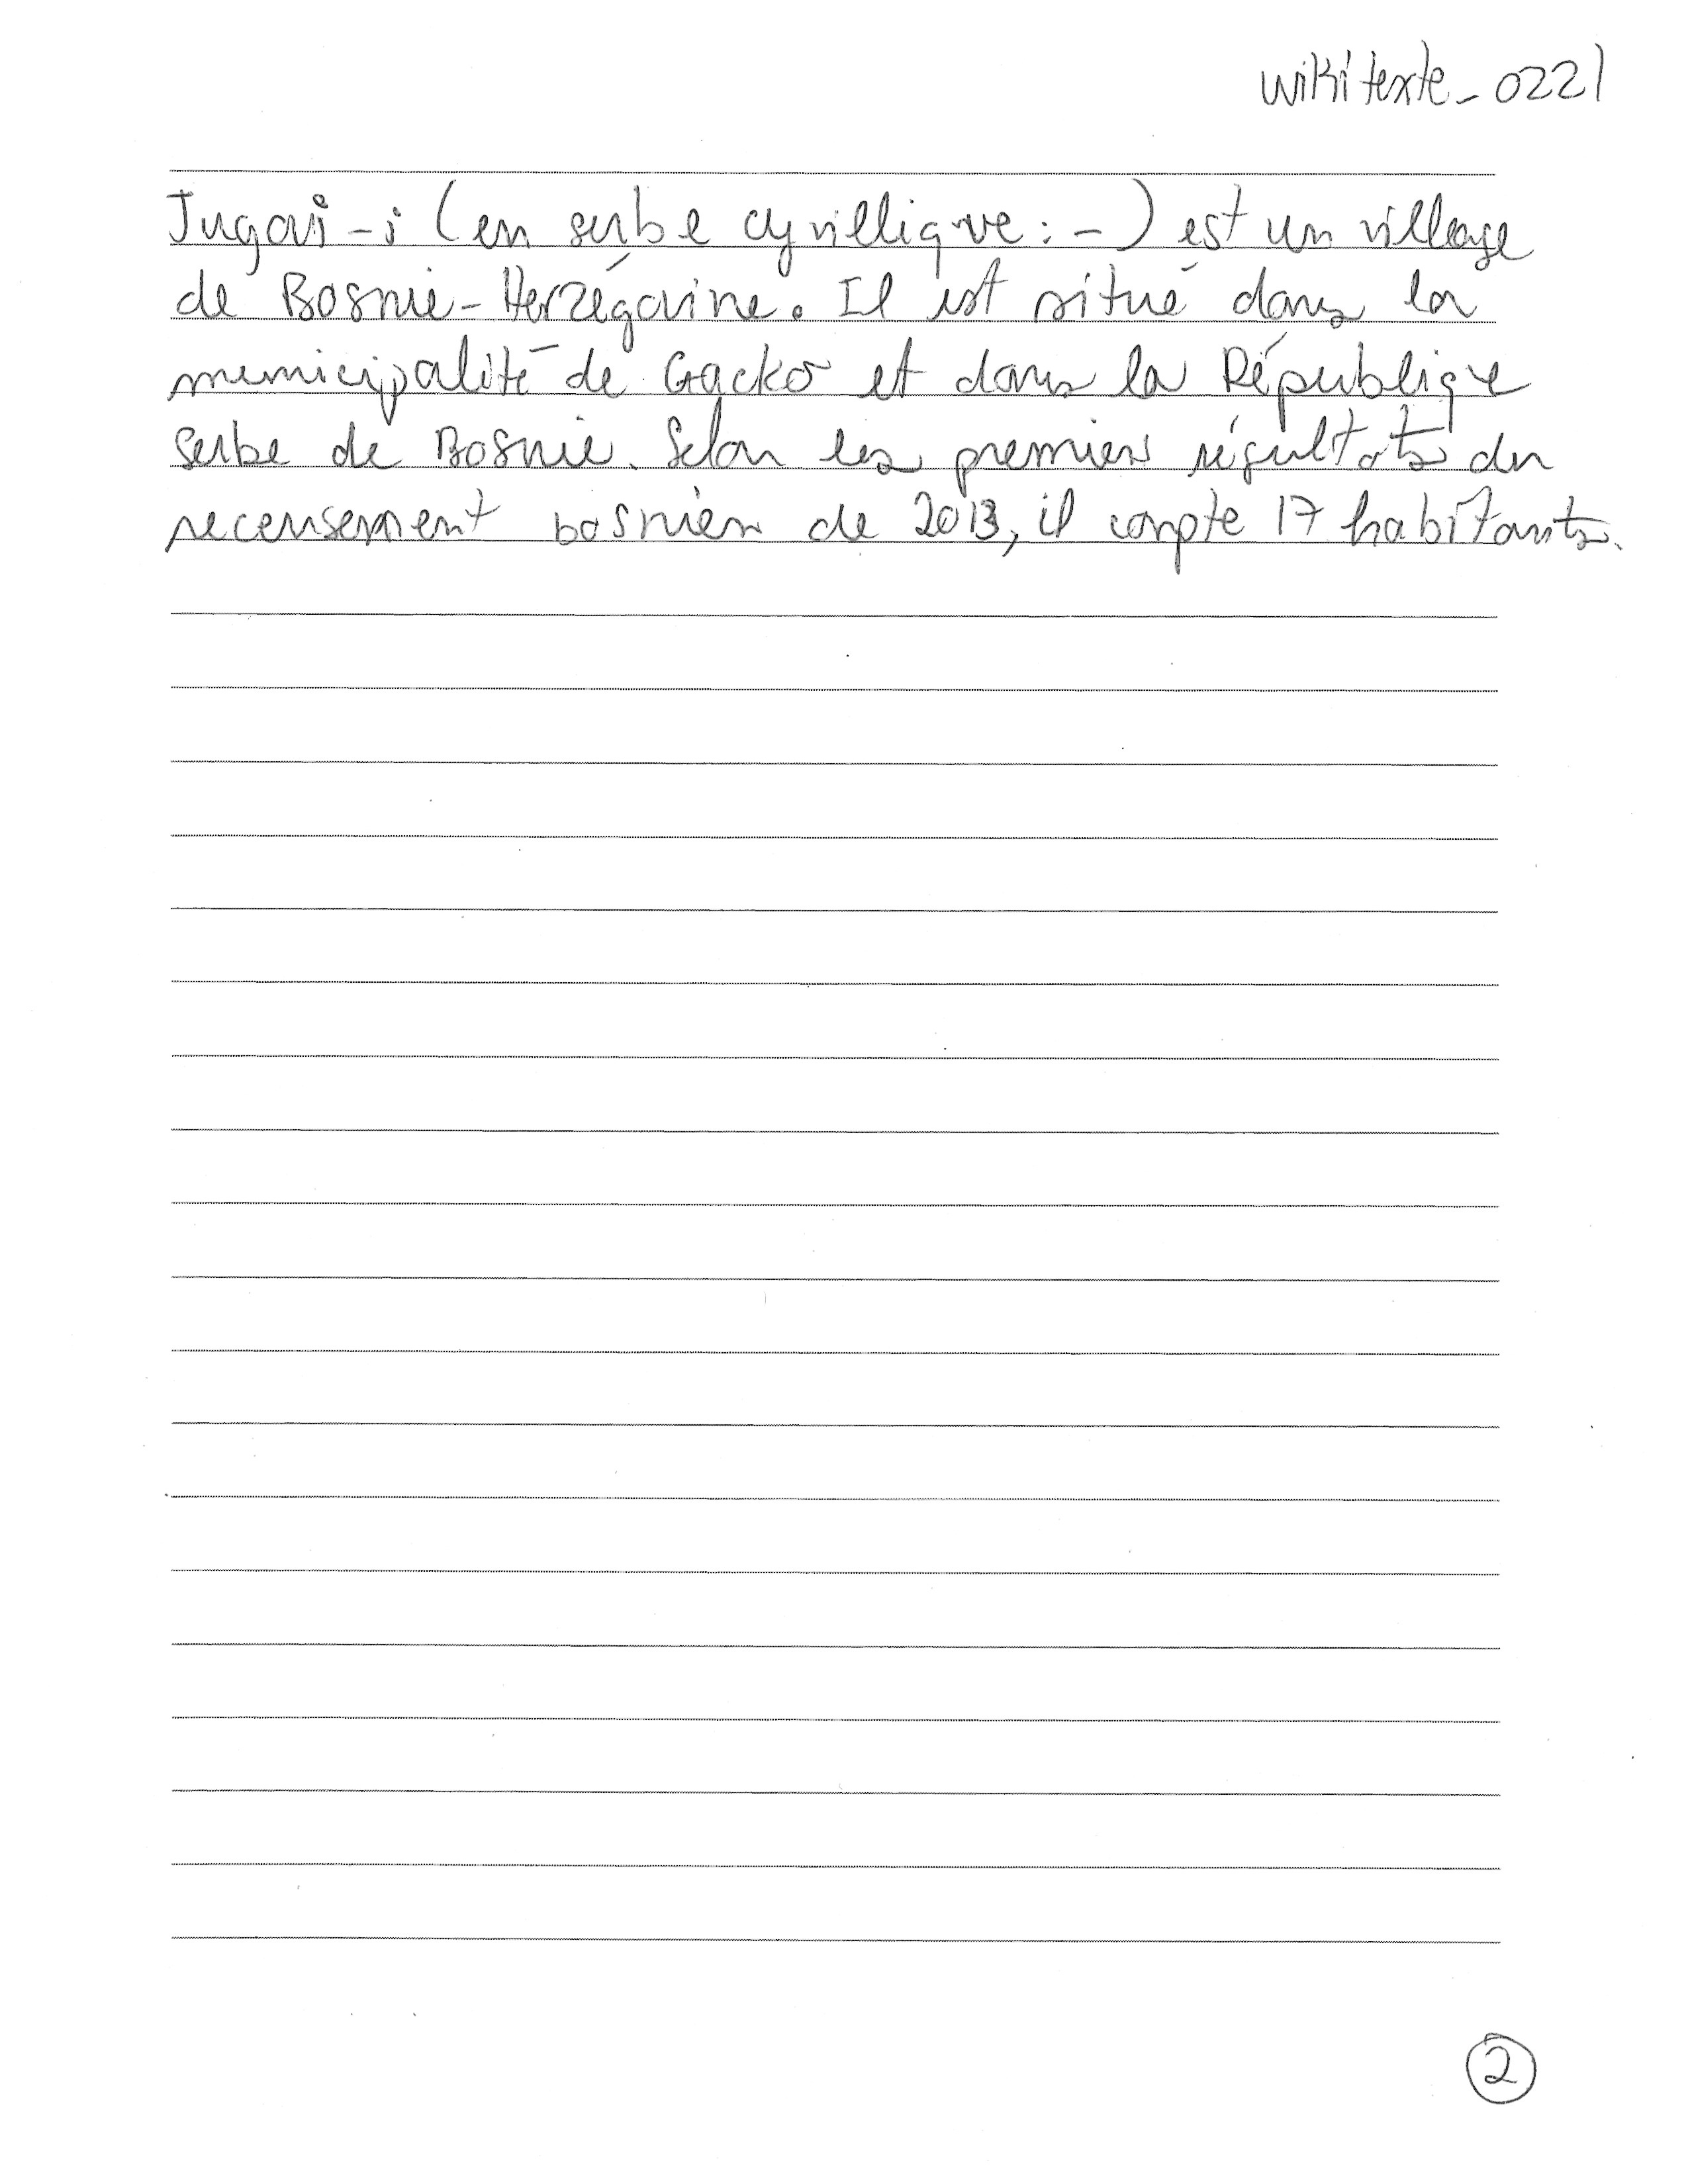 wikitexte_0221
Jugovi-i (en serbe cyrillique : -) est un village
de Bosnie-Herzégovine. Il est situé dans la
municipalité de Gacko et dans la République
serbe de Bosnie. Selon les premiers résultats du
recensement bosnien de 2013, il compte 17 habitants.
2